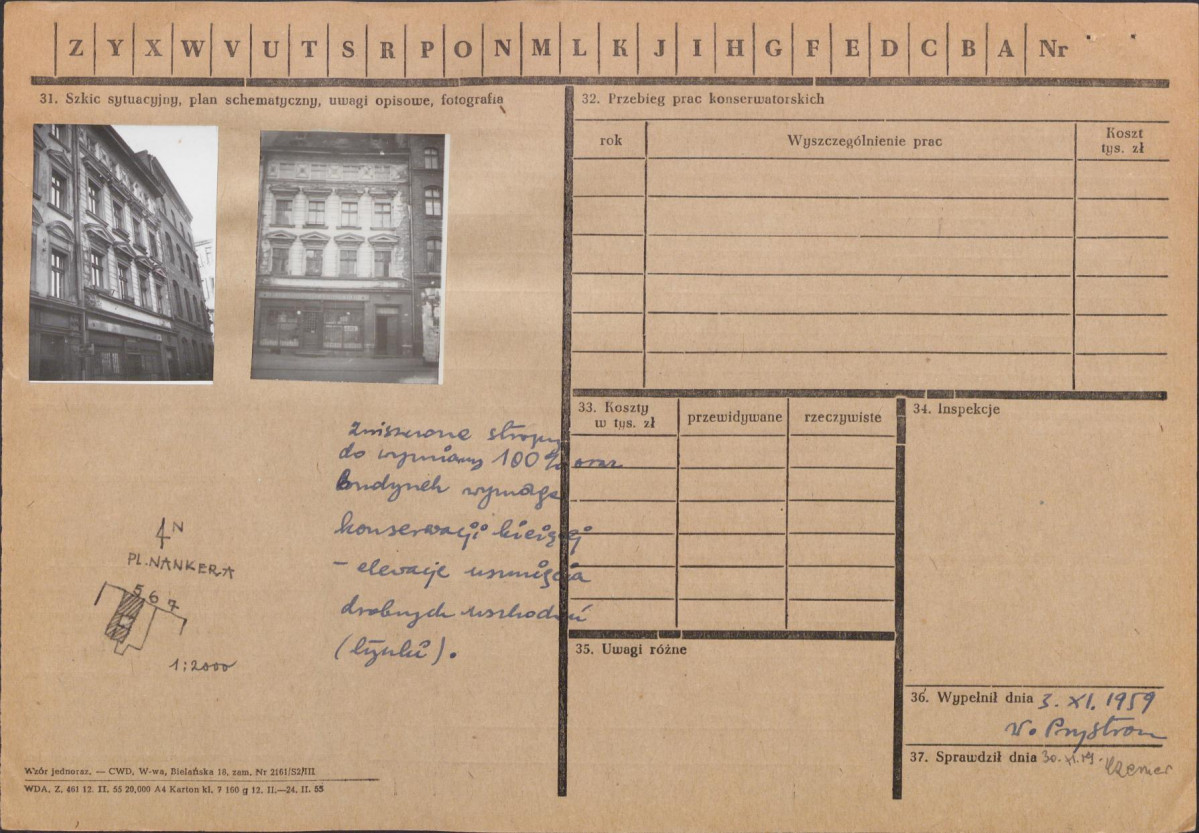 Z Y X W V U T S R P O N M L K J I H G F E D C B A Nr
31. Szkic sytuacyjny, plan schematyczny, uwagi opisowe, fotografia
Zniszczone stropy
do wymiany 100% oraz
budynek wymaga
konserwacji bieżącej
- elewacje usunięcia
drobnych uszkodzeń
(tynku).
N
PL. NANKERA
5 6 7
1:2000
Wzór jednoraz. — CWD, W-wa, Bielańska 18, zam. Nr 2161/S2/III
WDA. Z. 461 12. II. 55 20,000 A4 Karton kl. 7 160 g 12. II.—24. II. 55
32. Przebieg prac konserwatorskich
rok Wyszczególnienie prac Koszt tys. zł
33. Koszty w tys. zł przewidywane rzeczywiste
34. Inspekcje
35. Uwagi różne
36. Wypełnił dnia 3. XI. 1959
37. Sprawdził dnia 30. XI. 59.